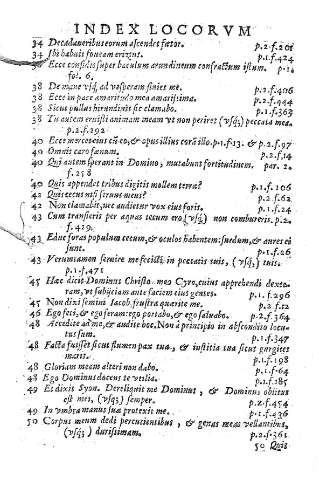 INDEX LOCORVM
34 De cadaueribus eorum ascendet fætor. p.2.f.201
34 Ibi habuit foueam erizius. p.1.f.424
36 Ecce confidis super baculum arundineum confractum istum. p.1.
fol. 6.
38 De mane vsq; ad vesperam finies me. p.2.f.406
38 Ecce in pace amaritudo mea amarissima. p.2.f.444
38 Sicut pullus hirundinis sic clamabo. p.1.f.363
38 Tu autem eruisti animam meam vt non perires (vsq;) peccata mea.
p.2.f.292
40 Ecce merces eius cū eo, & opus illius corā illo. p.1.f.13. & p.2.f.97
40 Omnis caro fœnum. p.2.f.14
40 Qui autem sperant in Domino, mutabunt fortitudinem. par. 2.
f. 258
40 Quis appendet tribus digitis mollem terræ? p.1.f.106
42 Quis cæcus nisi seruus meus? p.2.f.62
42 Non clamabit, nec audietur vox eius foris. p.1.f.24
43 Cum transieris per aquas tecum ero (vsq;) non combureris. p.2.
f. 429.
43 Educ foras populum cæcum, & oculos habentem: surdum, & aures ei
sunt. p.1.f.26
43 Verumtamen seruire me fecisti in peccatis tuis, (vsq;) tuis.
p.1.f.471
45 Hæc dicit Dominus Christo meo Cyro, cuius apprehendi dexte-
ram, vt subijciam ante faciem eius gentes. p.1.f.296
45 Non dixi semini Iacob, frustra quærite me. p.2.f.12
46 Ego feci, & ego feram: ego portabo, & ego saluabo. p.2.f.364
48 Accedite ad me, & audite hoc. Non à principio in abscondito locu-
tus sum. p.1.f.347
48 Facta fuisset sicut flumen pax tua, & iustitia tua sicut gurgites
maris. p.1.f.366
48 Gloriam meam alteri non dabo. p.1.f.64
48 Ego Dominus docens te vtilia. p.1.f.185
49 Et dixit Syon. Dereliquit me Dominus, & Dominus oblitus
est mei, (vsq;) semper. p.2.f.454
49 In vmbra manus suæ protexit me. p.1.f.436
50 Corpus meum dedi percutientibus, & genas meas vellantibus,
(vsq;) durissimam. p.2.f.361
50 Quis